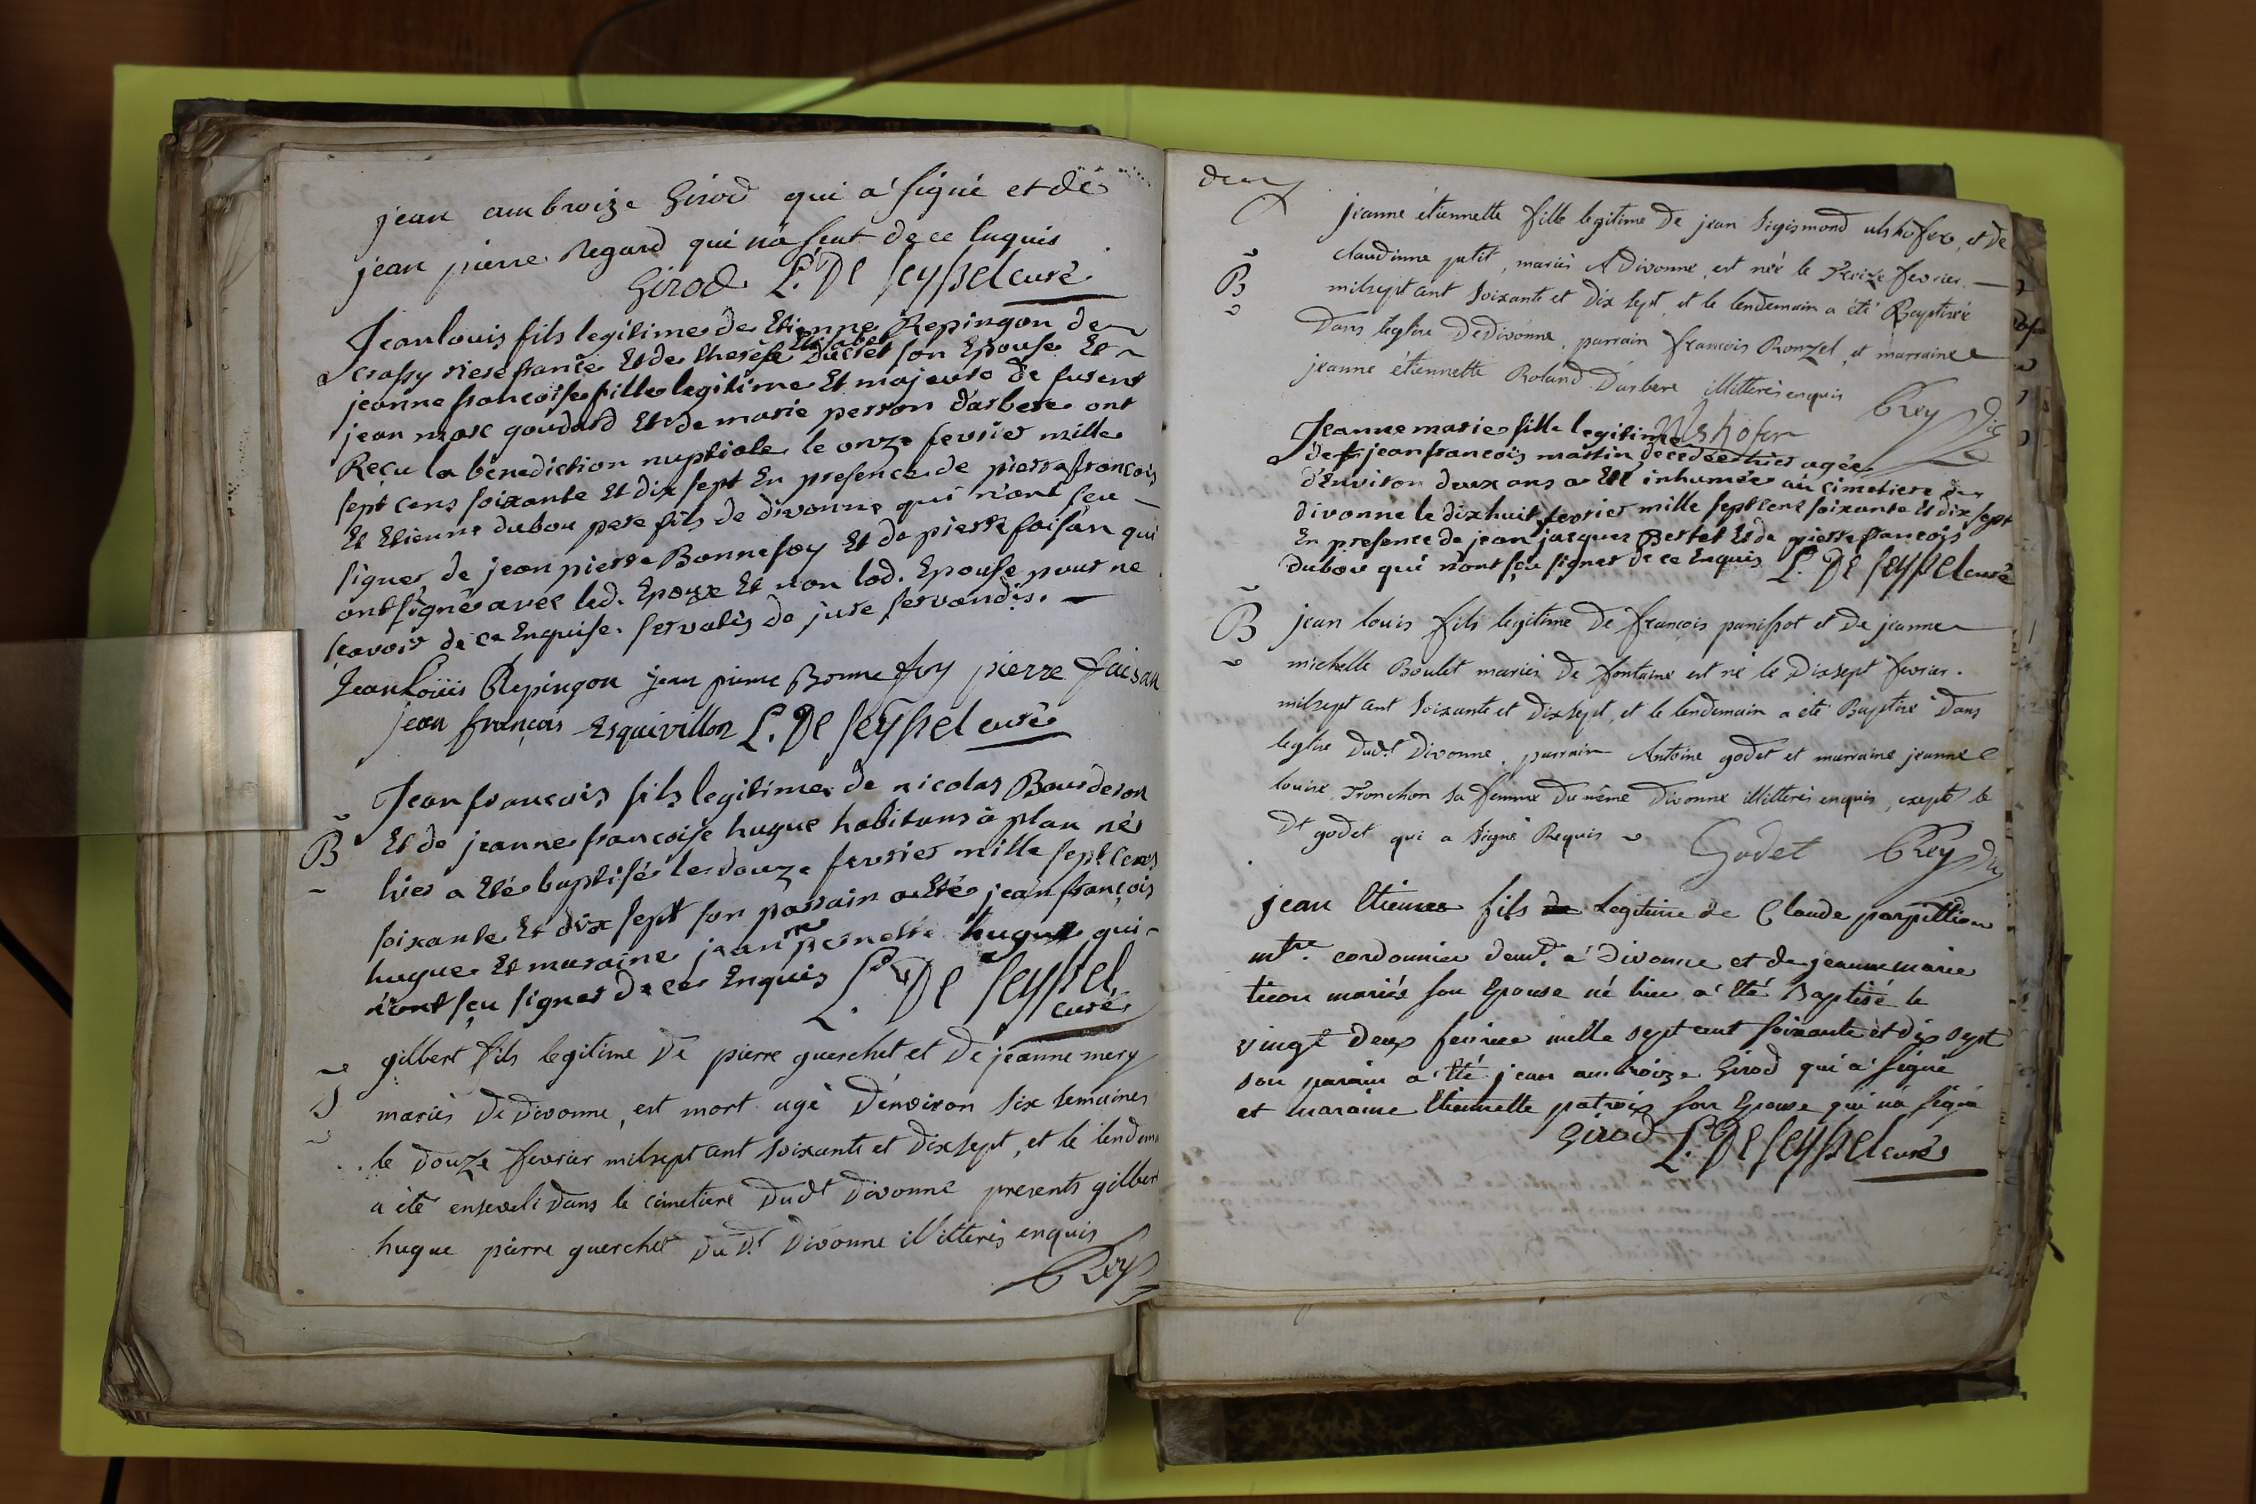 jean ambroize Girod qui a' signé et de
jean pierre Regard qui na sçut de ce Enquis
Girod L. De Seyssel curé
Jean louis fils legitime de Etienne Repingon de
crassy riere france Et de therese Elisabet Ducret son Epouse Et
jeanne françoise fille legitime Et majeure de fusent
jean marc goudard Et de marie perron d'arbere ont
Reçu la benediction nuptiale le onze fevrier mille
sept cens soixante Et dix sept En presence de pierre françois
Et Etienne dubou pere fils de divonne qui n'ont sçu
signer de jean pierre Bonnefoy Et de pierre foisan qui
ont signé avec led. Epoux Et non lad. Epouse pour ne
sçavoir de ce Enquise. servatis de jure servandis.
Jean Loüis Repingon jean pierre Bonnefoy pierre faisan
jean françois Esquivillon L. De Seyssel curé
Jean françois fils legitime de nicolas Bourderon
B Et de jeanne françoise hugue habitans à plan né
hier a Eté baptisé le douze fevrier mille sept cens
soixante Et dix sept son parrain a Eté jean françois
hugue Et maraine jeanne pernette hugue qui
n'ont sçu signer de ce Enquis L. De Seyssel
curé
gilbert fils legitime De pierre guerchet et De jeanne mery
S mariés De Divonne, est mort agé D'environ six semaines
le Douze fevrier milsept cent soixante et Dixsept, et le lendem
a été enseveli Dans le cimetiere Dudt Divonne presents gilbert
hugue pierre guerchet Du Dt Divonne illitterés enquis
Rey
deux
jeanne étiennette fille legitime De jean Sigismond ulshofer, et De
claudinne petit, mariés A Divonne, est née le Treize fevrier
B milsept cent soixante et Dix sept, et le lendemain a été Baptisée
Dans leglise De Divonne, parrain francois Ronzel, et marraine
jeanne étiennette Roland D'arbere illitterés enquis Rey Vic
Ulshofer
Jeanne marie fille legitime
de jean francois martin decedée hier agée
d'Environ deux ans a Eté inhumée au cimetiere de
divonne le dixhuit fevrier mille sept cent soixante Et dix sept
En presence de jean jacques Bertet Et de pierre françois
dubou qui n'ont sçu signer de ce Enquis L. De Seyssel curé
B jean louis fils legitime De françois panissot et De jeanne
michelle Boulet mariés De fontaine est né le Dixsept fevrier
milsept cent soixante et Dixsept, et le lendemain a été Baptisé Dans
leglise Dudt Divonne. parrain Antoine godet et marraine jeanne
louise Tronchon sa femme Du même Divonne illitterés enquis, exepté le
Dt godet qui a signé Requis Godet Rey Vic
jean Etienne fils de Legitime de Claude parpillion
mtre. cordonnier demt. a' Divonne et de jeanne marie
ticon mariés son Epouse né hier a' été Baptisé le
vingt deux fevrier mille sept cent soixante et dix sept
son parain a' Eté jean ambroize Girod qui a' signé
et maraine Etiennette patrois son Epouse qui na signé
Girod L. De Seyssel curé